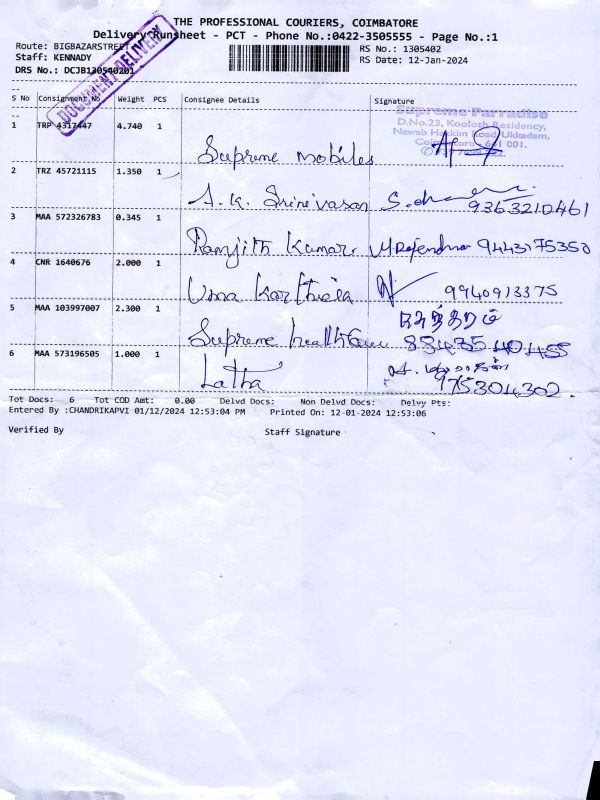 THE PROFESSIONAL COURIERS, COIMBATORE
Delivery Runsheet - PCT - Phone No.:0422-3505555 - Page No.:1
Route: BIGBAZARSTREET
RS No.: 1305402
Staff: KENNADY
RS Date: 12-Jan-2024
DRS No.: DCJB130540201
DOCUMENT DELIVERY
S No Consignment No Weight PCS Consignee Details Signature
Supreme Parradise
D.No.23, Kooloth Residency,
Nawab Hakkim Road, Ukkadam,
Coimbatore - 641 001.
1 TRP 4317447 4.740 1 Supreme mobiles
2 TRZ 45721115 1.350 1 A.K. Srinivasan 9363210461
3 MAA 572326783 0.345 1 Ranjith Kumar. M Rajendran 9443175350
4 CNR 1640676 2.000 1 Uma Karthiela 9940913375
5 MAA 103997007 2.300 1 Supreme healthcare
6 MAA 573196505 1.000 1 Latha 975304302.
Tot Docs: 6 Tot COD Amt: 0.00 Delvd Docs: Non Delvd Docs: Delvy Pts:
Entered By :CHANDRIKAPVI 01/12/2024 12:53:04 PM Printed On: 12-01-2024 12:53:06
Verified By Staff Signature